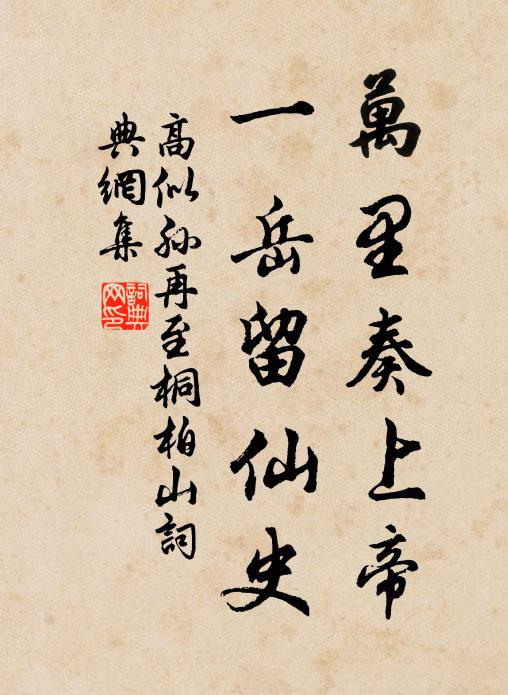 萬里奏上帝
一岳留仙史
高似孙再至桐柏山詞
典網集
詞典網印